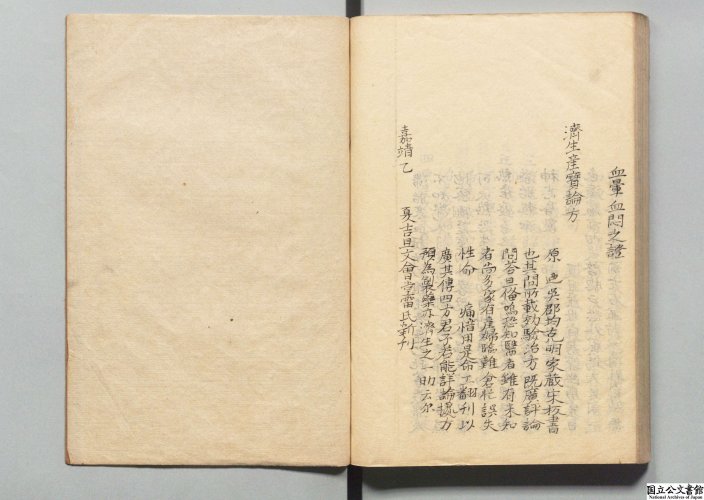 血暈血悶之證
濟生産寶論方
原 迺吳郡均克明家蔵宋板書
也其間所載効驗治方既廣評論
問荅且俻嗚恐知醫者雖有未知
者尚多家有産婦臨難倉茫誤失
性命 痛惜用是命工翻刊以
廣其傳四方君子若能詳論據方
預為製藥亦濟生之一助云尓
嘉靖乙 夏吉旦文會堂雷氏新刊
国立公文書館
National Archives of Japan